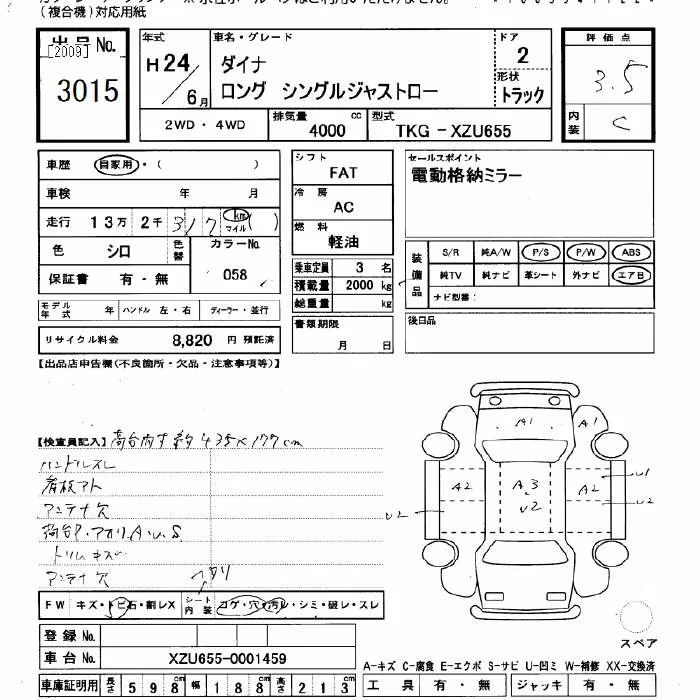 (複合機)対応用紙
出品No. [2009] 3015
年式 H24/6月
車名・グレード ダイナ
ロング シングルジャストロー
ドア 2
形状 トラック
評価点 3.5
内装 C
2WD・4WD 排気量 4000 cc 型式 TKG-XZU655
車歴 自家用・( )
車検 年 月
走行 13万 2千 317 km マイル ( )
色 シロ 色替 カラーNo. 058
保証書 有・無
モデル年式 年 ハンドル 左・右 ディーラー・並行
リサイクル料金 8,820 円 預託済
シフト FAT
冷房 AC
燃料 軽油
乗車定員 3 名
積載量 2000 kg
総重量 kg
書類期限 月 日
セールスポイント
電動格納ミラー
装備品 S/R 純A/W P/S P/W ABS
純TV 純ナビ 革シート 外ナビ エアB
ナビ型番:
後日品
【出品店申告欄(不良箇所・欠品・注意事項等)】
【検査員記入】荷台内寸 約 435×177cm
ハンドルスレ
看板アト
アンテナ穴
荷台P・アオリA・U・S
トリムキズ
アンテナ穴
A1 A1
A2 A3 U2 A2 U1
U2 U2
FW キズ・トビ石・割レX シート内装 コゲ・穴・汚レ・シミ・破レ・スレ
登録No.
車台No. XZU655-0001459
車庫証明用 長さ 598 幅 188 高さ 213
スペア
A-キズ C-腐食 E-エクボ S-サビ U-凹ミ W-補修 XX-交換済
工具 有・無 ジャッキ 有・無